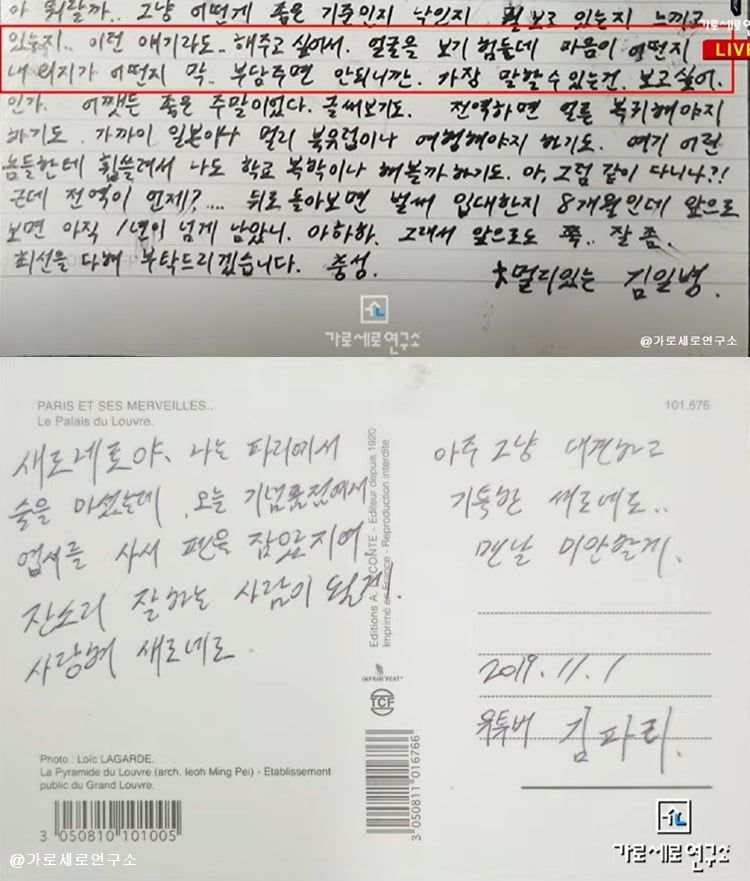 아 뭐랄까.. 그냥 어떤게 좋은 기준인지 낙인지 뭘 보고 있는지 느끼고
가로세로연구소
LIVE
있는지.. 이런 얘기라도.. 해주고 싶어서. 얼굴을 보기 힘들데 마음이 어떤지
내 의지가 어떤지 막.. 부담주면 안되니깐. 가장 말할 수 있는건. 보고싶어.
인가. 어쨋든 좋은 주말이었다. 글써보기도. 전역하면 얼른 복귀해야지
하기도. 가까이 일본이나 멀리 북유럽이나 여행해야지 하기도. 여기 어린
놈들한테 휩쓸려서 나도 학교 복학이나 해볼까하기도. 아, 그럼 같이 다니나?!
근데 전역이 언제?.... 뒤로 돌아보면 벌써 입대한지 8개월인데 앞으로
보면 아직 1년이 넘게 남았니. 아하하. 그래서 앞으로도 쭉.. 잘 좀.
최선을 다해 부탁드리겠습니다. 충성.
멀리있는 김일병.
가로세로연구소
@가로세로연구소
PARIS ET SES MERVEILLES..
Le Palais du Louvre.
101.676
새로네로야. 나는 파리에서
술을 마셨는데. 오늘 기념품점에서
엽서를 사서 펜을 잡았지여.
잔소리 잘하는 사람이 될게.
사랑해 새로네로.
Editions A. LECONTE - Editeur depuis 1920
Imprimé en France - Reproduction interdite
IMPRIM'VERT
TCF
아주 그냥 대견하고
기특한 새로네로..
맨날 미안할게.
2019. 11. 1
유투버 김파리.
Photo : Loïc LAGARDE.
La Pyramide du Louvre (arch. Ieoh Ming Pei) - Etablissement
public du Grand Louvre.
3 050810 101005
3 050811 016766
@가로세로연구소
가로세로연구소